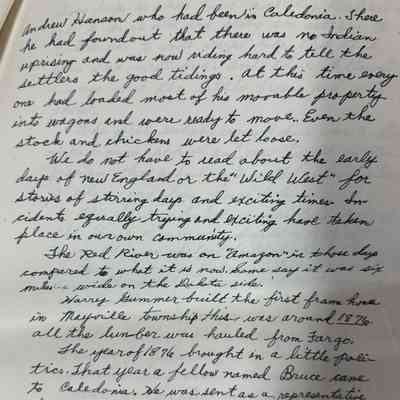 Andrew Hanson who had been in Caledonia. There
he had found out that there was no Indian
uprising and was now riding hard to tell the
settlers the good tidings. At this time every
one had loaded most of his movable property
into wagons and were ready to move.. Even the
stock and chickens were let loose.
We do not have to read about the early
days of new England or the "Wild West" for
stories of stirring days and exciting times. In-
cidents equally trying and exciting have taken
place in our own community.
The Red River was an "Amazon" in those days
compared to what it is now. Some say it was six
miles wide on the Dakota side.
Harry Gummer built the first frame house
in Mayville township this was around 1876
all the lumber was hauled from Fargo.
The year of 1876 brought in a little poli-
tics. That year a fellow named Bruce came
to Caledonia. He was sent as a representative